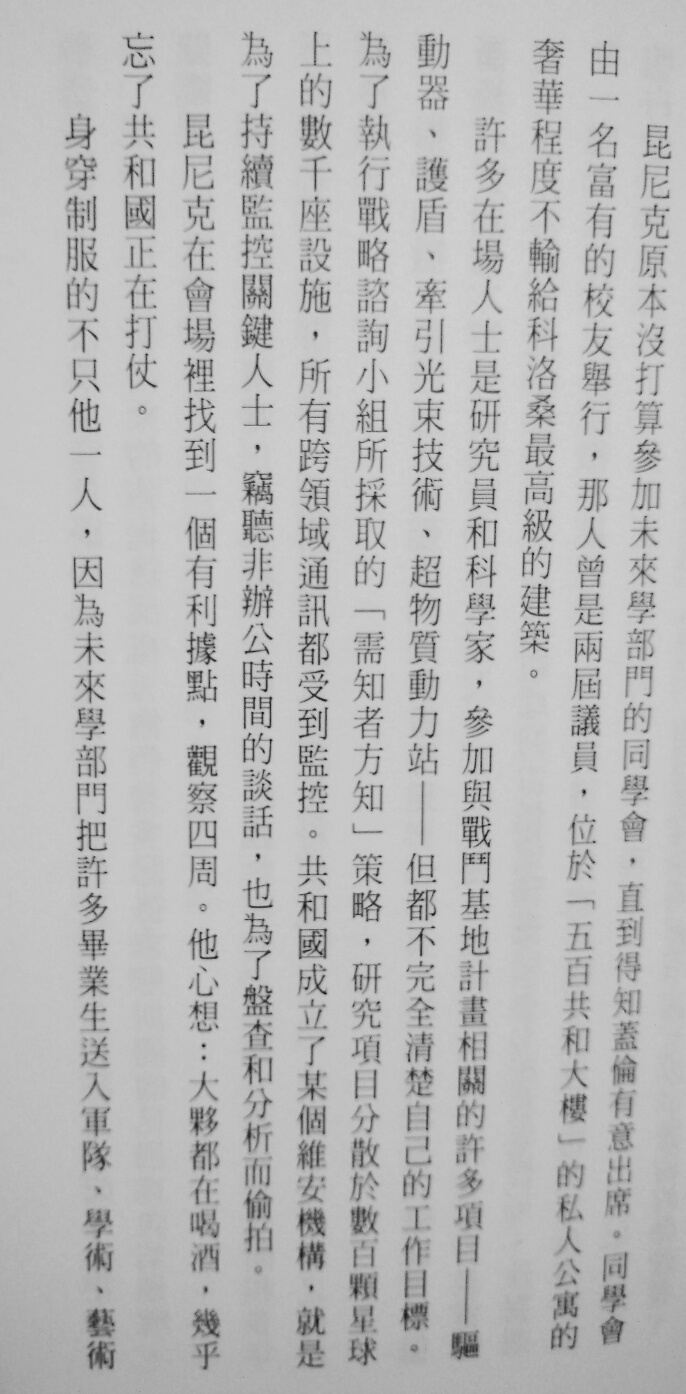 昆尼克原本沒打算參加未來學部門的同學會，直到得知蓋倫有意出席。同學會
由一名富有的校友舉行，那人曾是兩屆議員，位於「五百共和大樓」的私人公寓的
奢華程度不輸給科洛桑最高級的建築。
許多在場人士是研究員和科學家，參加與戰鬥基地計畫相關的許多項目——驅
動器、護盾、牽引光束技術、超物質動力站——但都不完全清楚自己的工作目標。
為了執行戰略諮詢小組所採取的「需知者方知」策略，研究項目分散於數百顆星球
上的數千座設施，所有跨領域通訊都受到監控。共和國成立了某個維安機構，就是
為了持續監控關鍵人士，竊聽非辦公時間的談話，也為了盤查和分析而偷拍。
昆尼克在會場裡找到一個有利據點，觀察四周。他心想：大夥都在喝酒，幾乎
忘了共和國正在打仗。
身穿制服的不只他一人，因為未來學部門把許多畢業生送入軍隊、學術、藝術